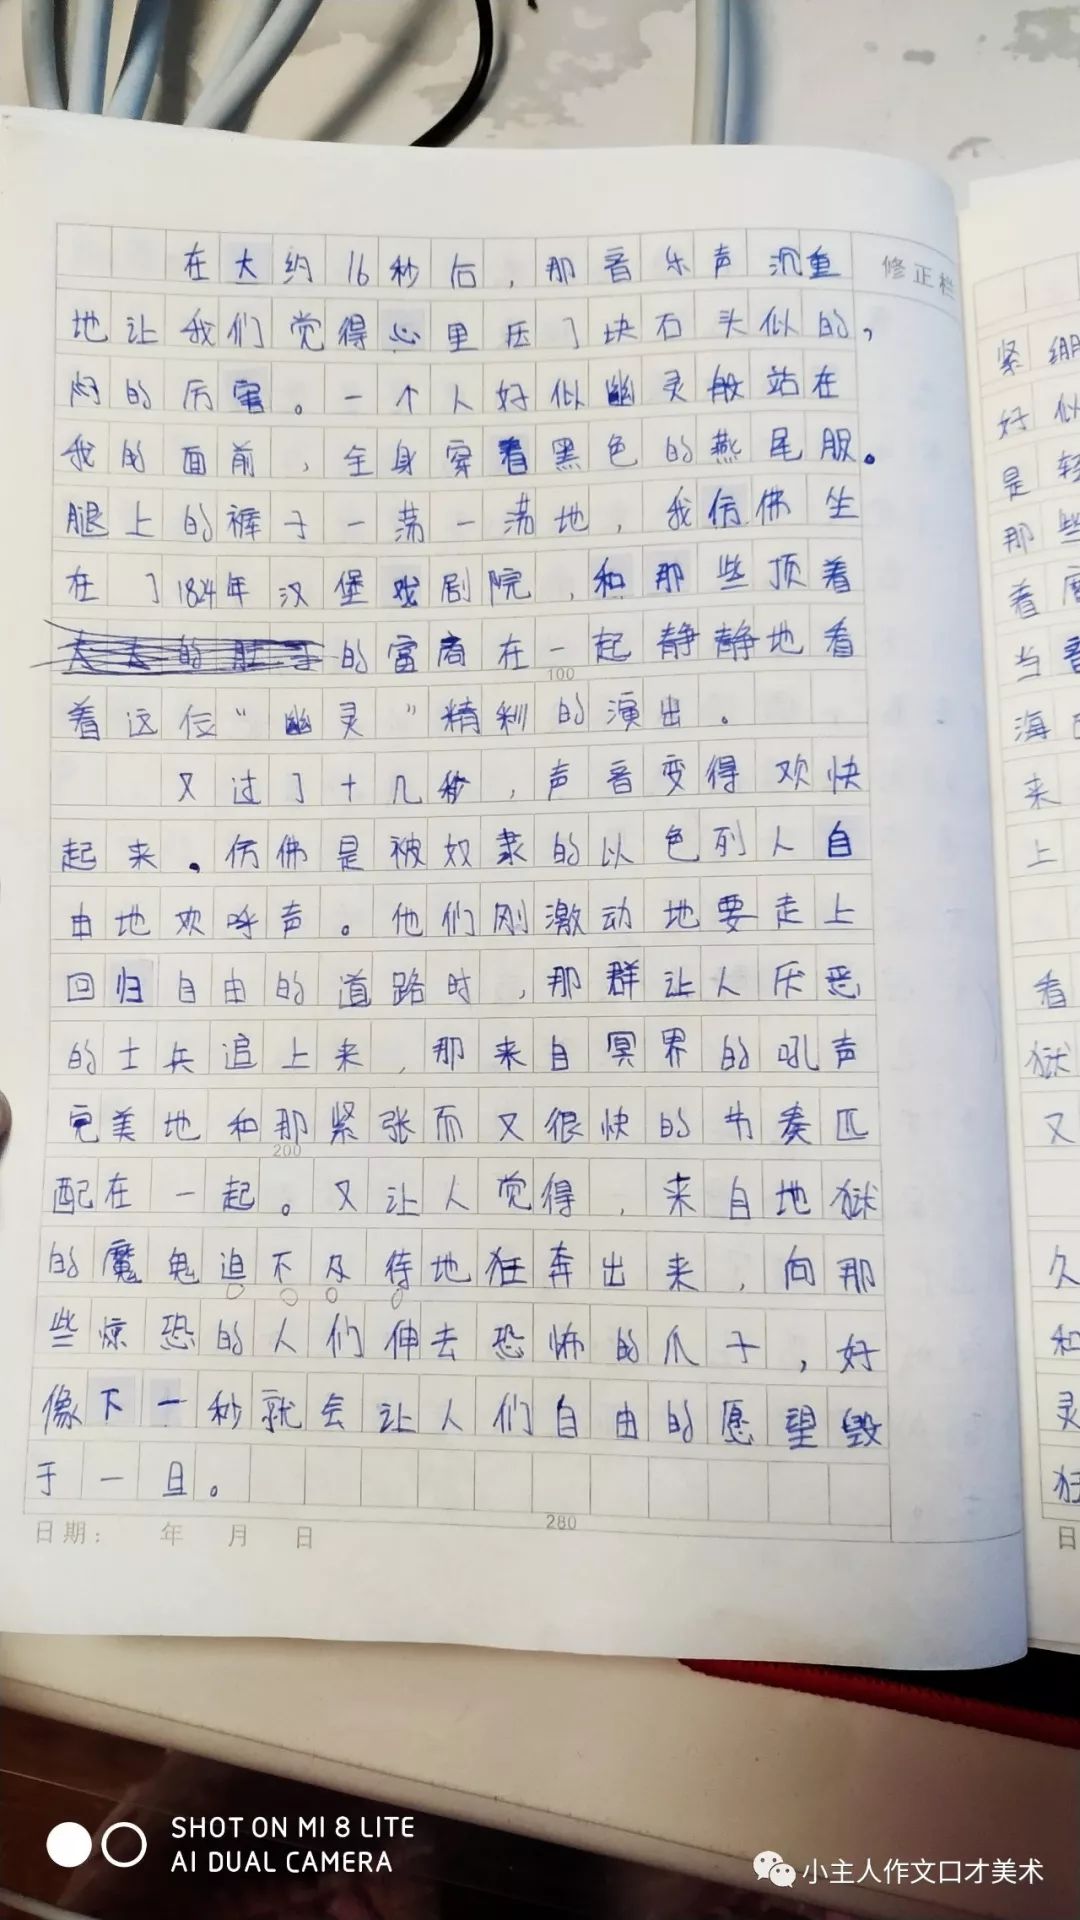 在大约16秒后，那音乐声沉重
地让我们觉得心里压了块石头似的，
闷的厉害。一个人好似幽灵般站在
我的面前，全身穿着黑色的燕尾服。
腿上的裤子一荡一荡地，我仿佛坐
在了1824年汉堡戏剧院，和那些顶着
的富商在一起静静地看
着这位“幽灵”精彩的演出。
又过了十几秒，声音变得欢快
起来。仿佛是被奴隶的以色列人自
由地欢呼声。他们刚激动地要走上
回归自由的道路时，那群让人厌恶
的士兵追上来，那来自冥界的吼声
完美地和那紧张而又很快的节奏匹
配在一起。又让人觉得，来自地狱
的魔鬼迫不及待地狂奔出来，向那
些惊恐的人们伸去恐怖的爪子，好
像下一秒就会让人们自由的愿望毁
于一旦。
修正栏
100
200
280
日期： 年 月 日
紧绷
好似
是轻
那些
着
当看
海
来
上
看
狱
又
久
和
灵
狂
日
SHOT ON MI 8 LITE
AI DUAL CAMERA
小主人作文口才美术